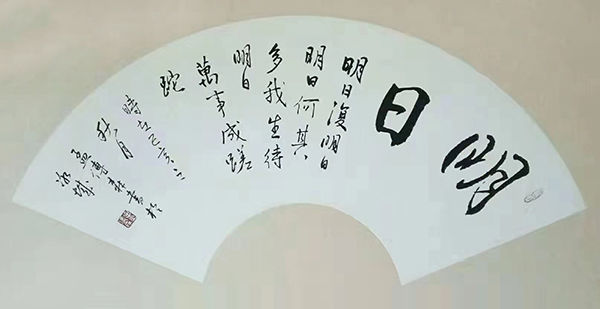 明日
明日復明日
明日何其
多我生待
明日
萬事成蹉
跎
時在己亥之
秋月
書於
城